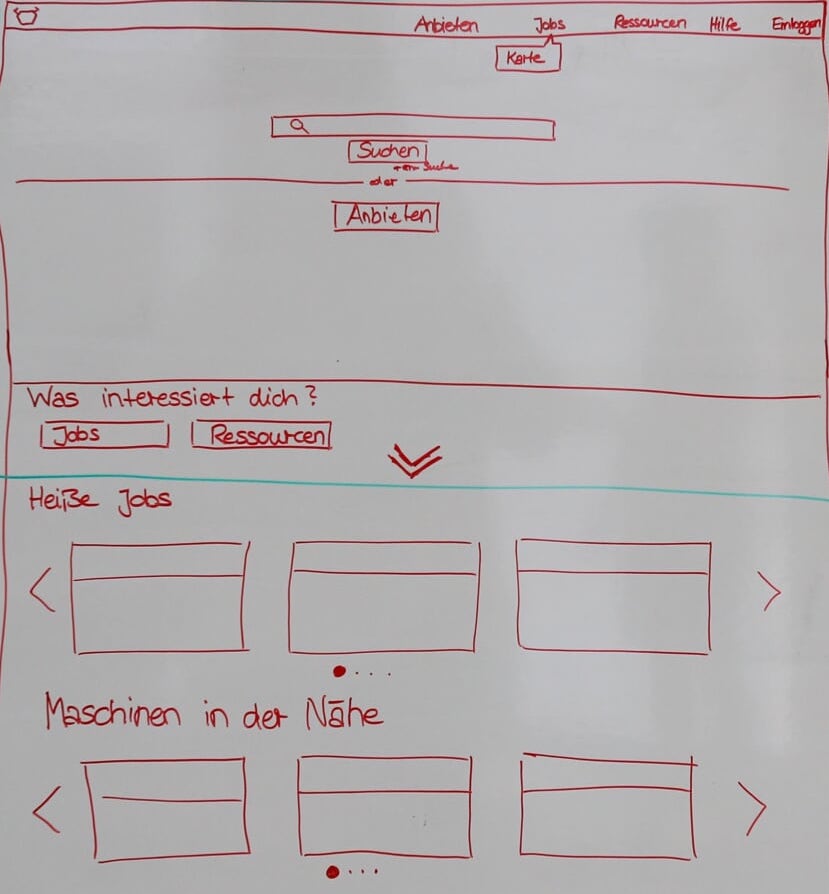 Anbieten Jobs Ressourcen Hilfe Einloggen
Karte
Suchen
Suche
oder
Anbieten
Was interessiert dich?
Jobs Ressourcen
Heiße Jobs
Maschinen in der Nähe